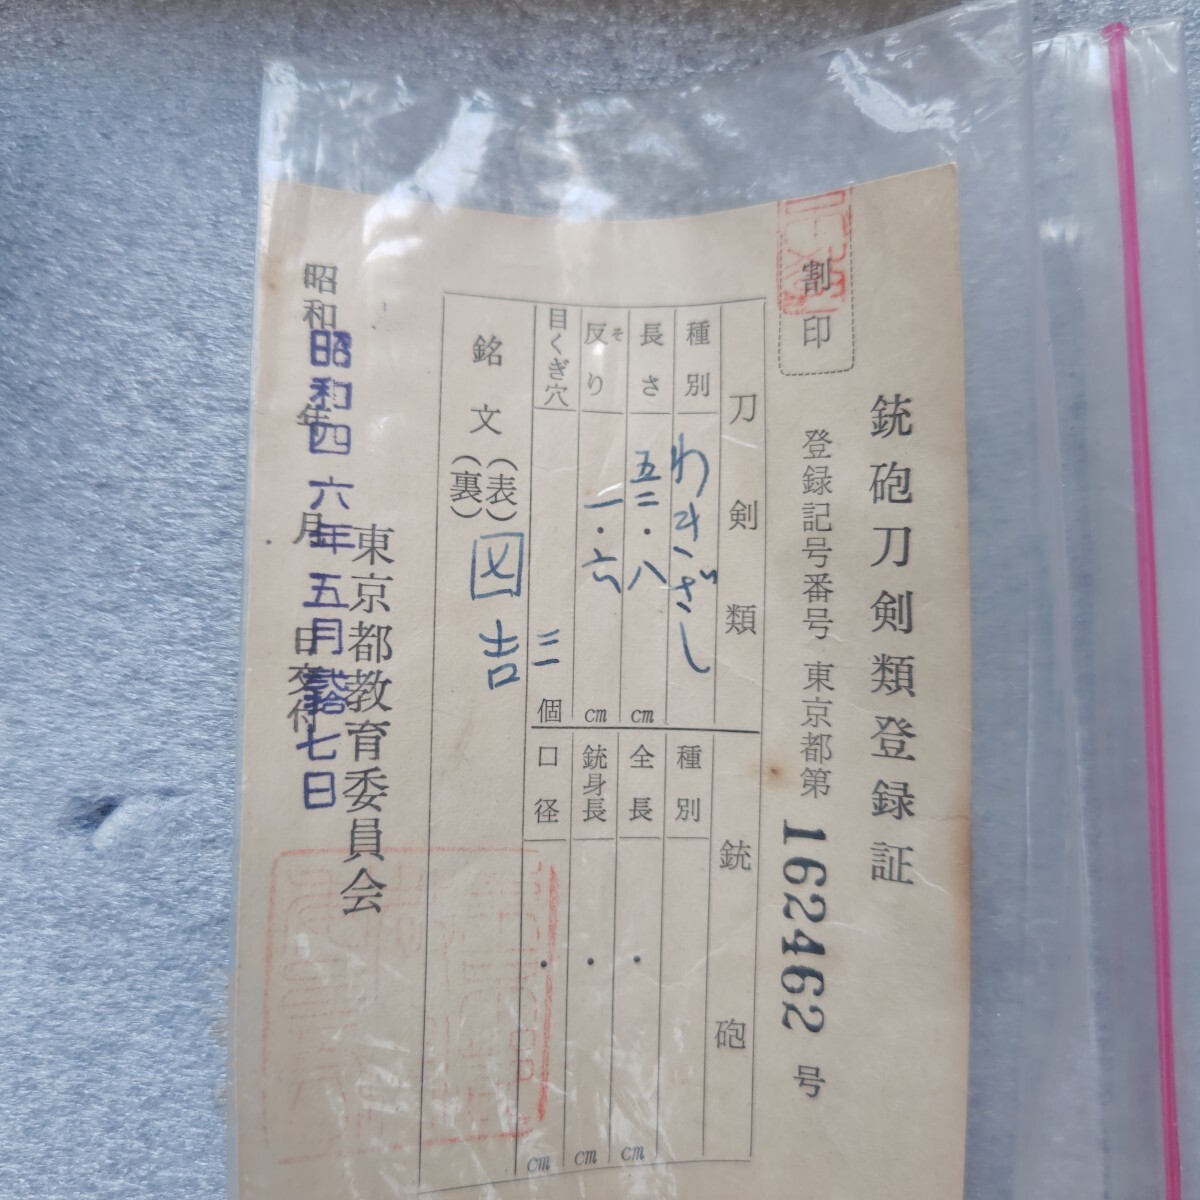 銃砲刀剣類登録証
割印
登録記号番号 東京都第 162462 号
刀剣類
種別 わきざし
長さ 五二・八 cm
反り そ 一・六 cm
目くぎ穴 三 個
銘文 (表)
(裏)
吉
銃砲
種別
全長 ・ cm
銃身長 ・ cm
口径 ・ cm
東京都教育委員会
昭和 年 月 日交付
昭和四六年五月弐拾七日